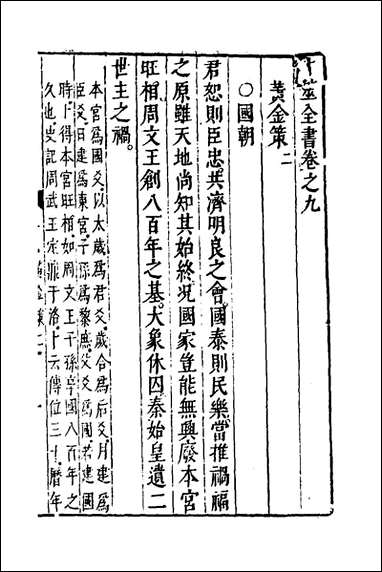 卜筮全書卷之九
黃金策二
○國朝
君恕則臣忠共濟明良之會國泰則民樂當推禍福
之原雖天地尚知其始終况國家豈能無興廢本宮
旺相周文王創八百年之基大象休囚秦始皇遺二
世主之禍。
本宮爲國爻以太歲爲君爻歲合爲后爻月建爲
臣爻日建爲東宮子孫爲黎庶父爻爲國若建國
時卜得本宮旺相如周文王子孫享國八百年之
久也史記周武王定鼎于洛卜云傳位三十曆年